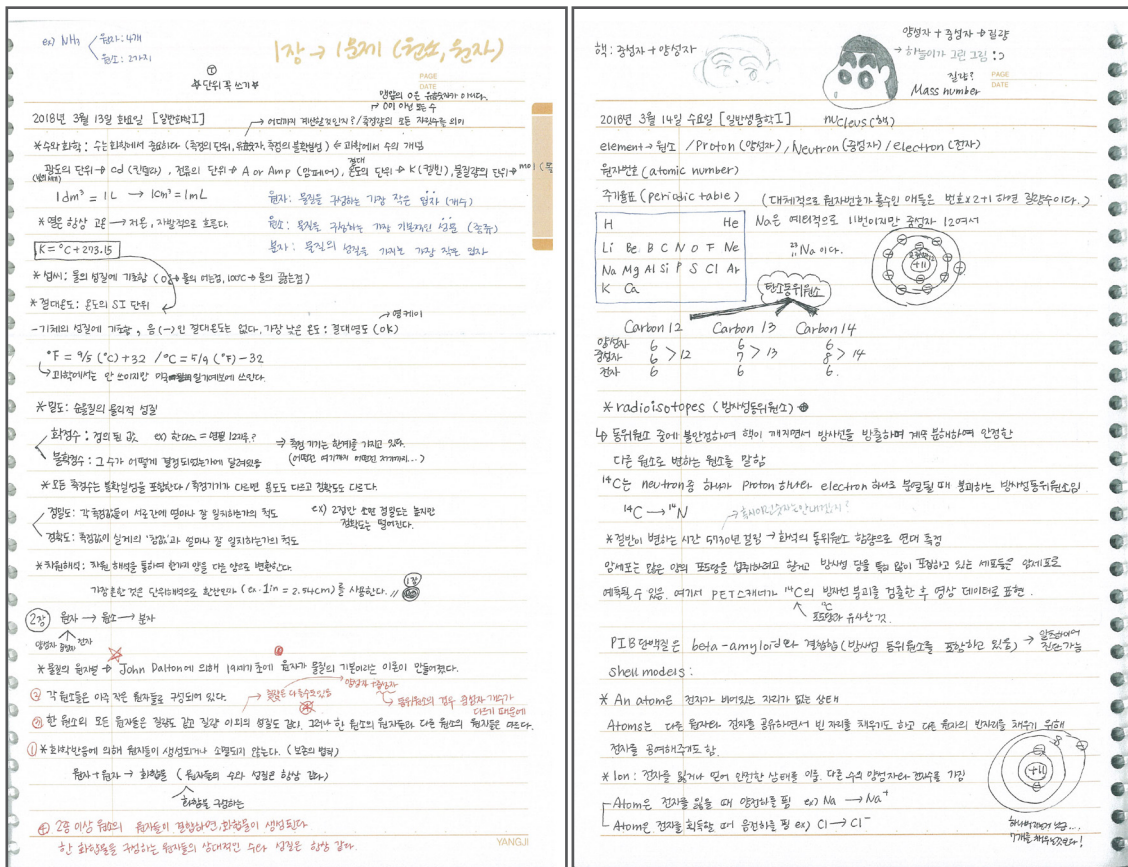 ex) NH₃ 원자: 4개
원소: 2가지
1장 → 1문제 (원소, 원자)
☆단위 꼭 쓰기☆
PAGE
DATE
맨앞의 0은 유효숫자가 아니다.
→ 0이 아닌 모든 수
2018년 3월 13일 화요일 [일반화학Ⅰ]
→ 어디까지 계산할것인지? / 측정량의 모든 자릿수를 의미
*수와 화학: 수는 화학에서 중요하다 (측정의 단위, 유효숫자, 측정의 불확실성) 과학에서 수의 개념
광도의 단위 → cd (칸델라), 전류의 단위 → A or Amp (암페어), 절대온도의 단위 → K (켈빈), 물질량의 단위 → mol
1dm³ = 1L → 1cm³ = 1mL
원자: 물질을 구성하는 가장 작은 입자 (개수)
*열은 항상 고온 → 저온, 자발적으로 흐른다.
원소: 물질을 구성하는 가장 기본적인 성분 (종류)
K = °C + 273.15
분자: 물질의 성질을 가지는 가장 작은 입자
*섭씨: 물의 성질에 기초함 (0℃ → 물의 어는점, 100℃ → 물의 끓는점)
*절대온도: 온도의 SI 단위
→ 영케이
-기체의 성질에 기초함, 음(-)인 절대온도는 없다, 가장 낮은 온도: 절대영도 (0K)
°F = 9/5 (°C) + 32 / °C = 5/9 (°F) - 32
→ 과학에서는 안 쓰이지만 미국 일기예보에 쓰인다.
*밀도: 순물질의 물리적 성질
확정수: 정의 된 값 ex) 한다스 = 연필 12자루?
⇒ 측정 기기는 한계를 가지고 있다.
불확정수: 그 수가 어떻게 결정되었는가에 달려있음
(어떨땐 여기까지 어떨땐 저기까지...)
*모든 측정수는 불확실성을 포함한다 / 측정기기가 다르면 용도도 다르고 정확도도 다르다.
정밀도: 각 측정값들이 서로간에 얼마나 잘 일치하는가의 척도
ex) 2점만 쏘면 정밀도는 높지만
정확도는 떨어진다.
정확도: 측정값이 실제의 '참값'과 얼마나 잘 일치하는가의 척도
*차원해석: 차원 해석을 통하여 한가지 양을 다른 양으로 변환한다.
가장 흔한 것은 단위해석으로 환산인자 (ex. 1in = 2.54cm)를 사용한다. // 1장 끝
2장 원자 → 원소 → 분자
양성자 중성자 전자
*물질의 원자설 → John Dalton에 의해 19세기 초에 원자가 물질의 기본이라는 이론이 만들어졌다.
② 각 원소들은 아주 작은 원자들로 구성되어 있다.
→ 질량은 다를수도 있음
양성자 + 중성자
→ 동위원소의 경우 중성자 개수가
다르기 때문에
③ 한 원소의 모든 원자들은 질량도 같고 질량 이외의 성질도 같다. 그러나 한 원소의 원자들과 다른 원소의 원자들은 다르다.
① *화학반응에 의해 원자들이 생성되거나 소멸되지 않는다. (보존의 법칙)
원자 + 원자 → 화합물 (원자들의 수와 성질은 항상 같다)
화합물을 구성하는
④ 2종 이상 원소의 원자들이 결합하면, 화합물이 생성된다
한 화합물을 구성하는 원자들의 상대적인 수와 성질은 항상 같다.
YANGJI
핵: 중성자 + 양성자
양성자 + 중성자 → 질량
→ 하늘이가 그린 그림 :>
질량?
Mass number
PAGE
DATE
2018년 3월 14일 수요일 [일반생물학Ⅰ]
nucleus (핵)
element → 원소 / Proton (양성자) / Neutron (중성자) / electron (전자)
원자번호 (atomic number)
주기율표 (periodic table)
(대체적으로 원자번호가 홀수인 애들은 번호×2+1 하면 질량수이다.)
H He
Li Be B C N O F Ne
Na Mg Al Si P S Cl Ar
K Ca
Na은 예외적으로 11번이지만 중성자 12여서
²³₁₁Na 이다.
+11
탄소동위원소
Carbon 12 Carbon 13 Carbon 14
양성자 6 6 6
중성자 6 > 12 7 > 13 8 > 14
전자 6 6 6
*radioisotopes (방사성동위원소)
↳ 동위원소 중에 불안정하여 핵이 깨지면서 방사선을 방출하며 계속 분해하여 안정한
다른 원소로 변하는 원소를 말함
¹⁴C는 neutron중 하나가 proton 하나와 electron 하나로 분열될 때 붕괴하는 방사성동위원소임.
¹⁴C → ¹⁴N
*절반이 변하는 시간 5730년 걸림 → 화석의 동위원소 함량으로 연대 측정
암세포는 많은 양의 포도당을 섭취하려고 한다고 방사성 당을 특히 많이 포함하고 있는 세포들은 암세포로
예측될 수 있음. 여기서 PET스캐너가 ¹⁴C의 방사선 붕괴를 검출한 후 영상 데이터로 표현.
포도당과 유사한 것.
PIB단백질은 beta-amyloid와 결합함 (방사성 동위원소를 포함하고 있음) →
진단 가능
shell models:
* An atom은 전자가 비어있는 자리가 없는 상태
Atoms는 다른 원자와 전자를 공유하면서 빈 자리를 채우기도 하고 다른 원자의 빈자리를 채우기 위해
전자를 공여해주기도 함.
* Ion: 전자를 잃거나 얻어 안전한 상태를 이룸, 다른 수의 양성자와 전자수를 가짐
Atom은 전자를 잃을 때 양전하를 띔 ex) Na → Na⁺
Atom은 전자를 획득할 때 음전하를 띔 ex) Cl → Cl⁻
8
+11
7개를 채우는것보다!